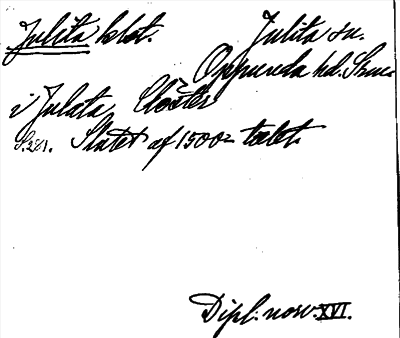 Julita klot. Julita sn.
Oppunda hd. Srml.
i Julata Closter
S. 281. Slutet af 1500-talet.
Dipl. norv. XVI.